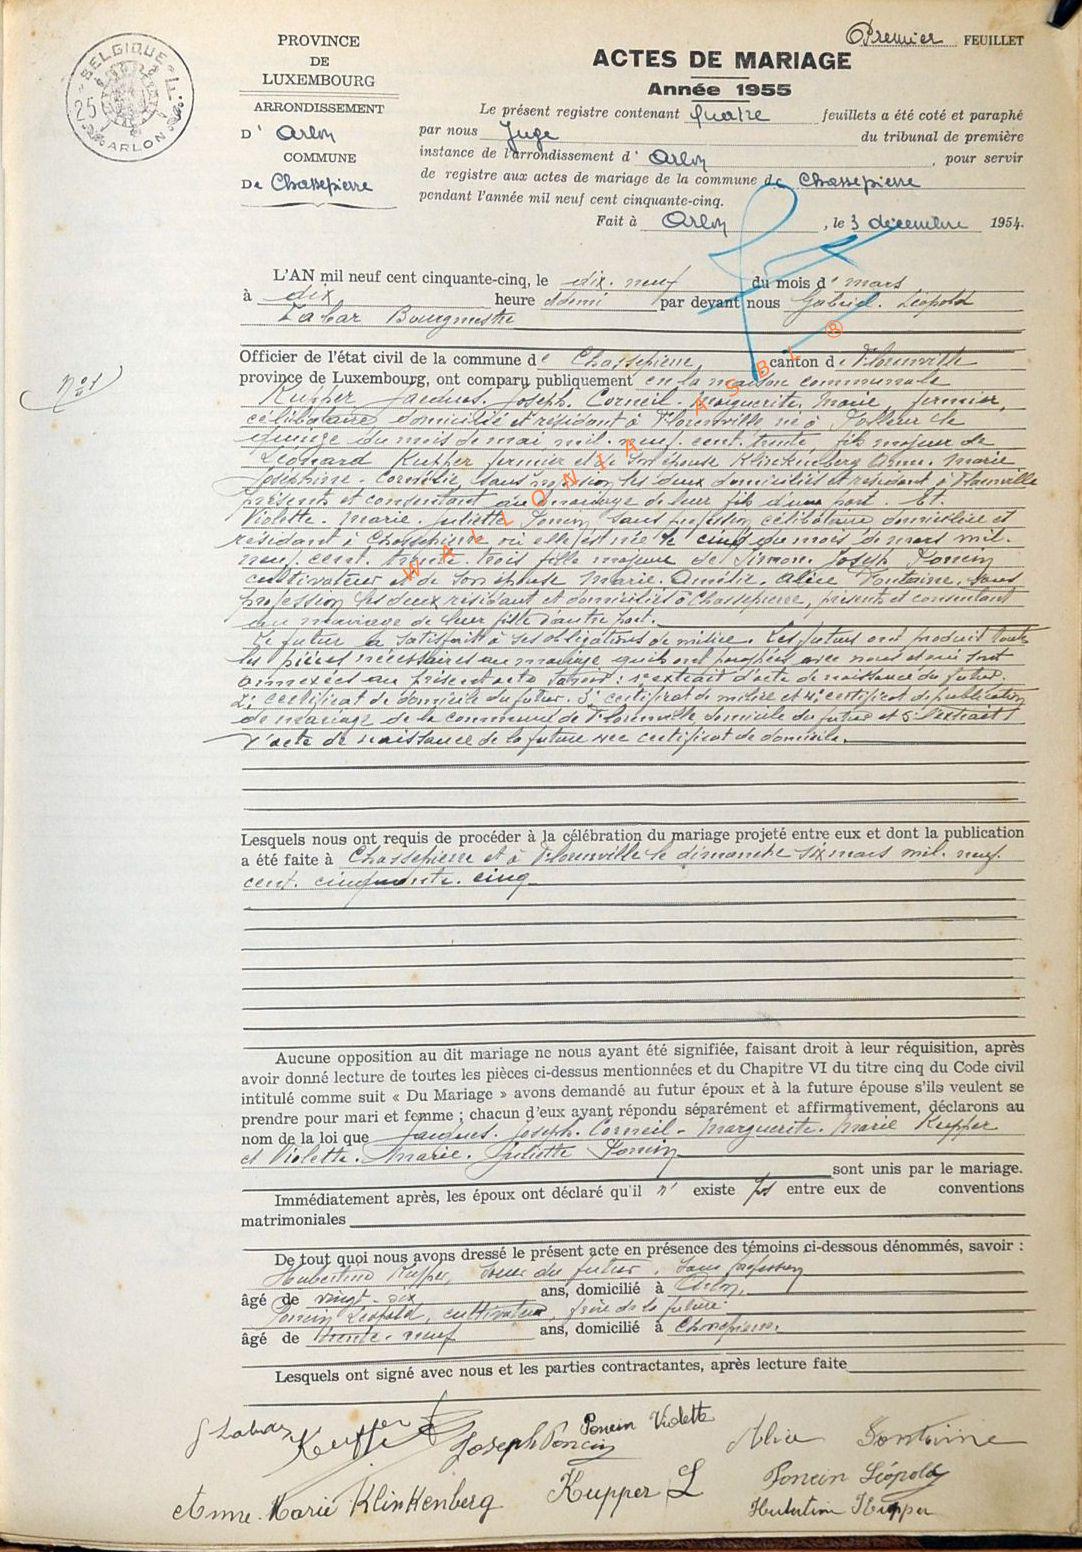 BELGIQUE
25 F.
ARLON
PROVINCE
DE
LUXEMBOURG
ARRONDISSEMENT
D' Arlon
COMMUNE
De Chassepierre
Premier FEUILLET
ACTES DE MARIAGE
Année 1955
Le présent registre contenant quatre feuillets a été coté et paraphé
par nous Juge du tribunal de première
instance de l'arrondissement d' Arlon, pour servir
de registre aux actes de mariage de la commune de Chassepierre
pendant l'année mil neuf cent cinquante-cinq.
Fait à Arlon, le 3 décembre 1954.
L'AN mil neuf cent cinquante-cinq, le dix-neuf du mois d' mars
à dix heure et demi par devant nous Gabriel. Léopold
Labar Bourgmestre
Officier de l'état civil de la commune de Chassepierre, canton de Florenville
province de Luxembourg, ont comparu publiquement en la maison communale
N° 1
Kupper Jacques. Joseph. Corneil. Marguerite. Marie, fermier,
célibataire, domicilié et résidant à Florenville né à le
quinze du mois de mai mil. neuf. cent. trente fils majeur de
Léonard Kupper fermier et de son épouse Klinkenberg Anne. Marie
Joséphine. Cornélie, sans profession, les deux domiciliés et résidant à Florenville
présents et consentant au mariage de leur fils d'une part. Et
Violette. Marie. Juliette Poncin, sans profession, célibataire domiciliée et
résidant à Chassepierre où elle est née le cinq du mois de mars mil.
neuf. cent. trente. trois fille majeure de Simon. Joseph Poncin
cultivateur et de son épouse Marie. Amélie. Alice Fontaine, sans
profession les deux résidant et domiciliés à Chassepierre, présents et consentant
au mariage de leur fille d'autre part.
Le futur a satisfait à ses obligations de milice. Les futurs ont produit toutes
les pièces nécessaires au mariage qu'ils ont paraphées avec nous et qui sont
annexées au présent acte savoir: 1° extrait d'acte de naissance du futur.
2° certificat de domicile du futur. 3° certificat de milice et 4° certificat de publication
de mariage de la commune de Florenville domicile du futur et 5° l'extrait
d'acte de naissance de la future avec certificat de domicile.
Lesquels nous ont requis de procéder à la célébration du mariage projeté entre eux et dont la publication
a été faite à Chassepierre et à Florenville le dimanche six mars mil. neuf.
cent. cinquante. cinq
Aucune opposition au dit mariage ne nous ayant été signifiée, faisant droit à leur réquisition, après
avoir donné lecture de toutes les pièces ci-dessus mentionnées et du Chapitre VI du titre cinq du Code civil
intitulé comme suit « Du Mariage » avons demandé au futur époux et à la future épouse s'ils veulent se
prendre pour mari et femme ; chacun d'eux ayant répondu séparément et affirmativement, déclarons au
nom de la loi que Jacques. Joseph. Corneil. Marguerite. Marie Kupper
et Violette. Marie. Juliette Poncin
sont unis par le mariage.
Immédiatement après, les époux ont déclaré qu'il n' existe pas entre eux de conventions
matrimoniales
De tout quoi nous avons dressé le présent acte en présence des témoins ci-dessous dénommés, savoir :
Hubertine Kupper, soeur du futur, sans profession
âgé de vingt-six ans, domicilié à Arlon.
Poncin Léopold, cultivateur, frère de la future.
âgé de trente-neuf ans, domicilié à Chassepierre.
Lesquels ont signé avec nous et les parties contractantes, après lecture faite
G Labar Kupper J Joseph Poncin Poncin Violette Alice Fontaine
Anne. Marie Klinkenberg Kupper L Poncin Léopold
Hubertine Kupper
WALLONIA ASBL ®